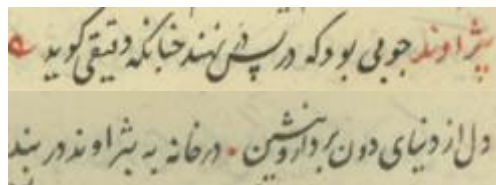 بیژاوند جوبی بود که در پس در نهند چنانکه دقیقی کوید
دل از دنیای دون بردار و بنشین • در خانه به بیژاوند در بند